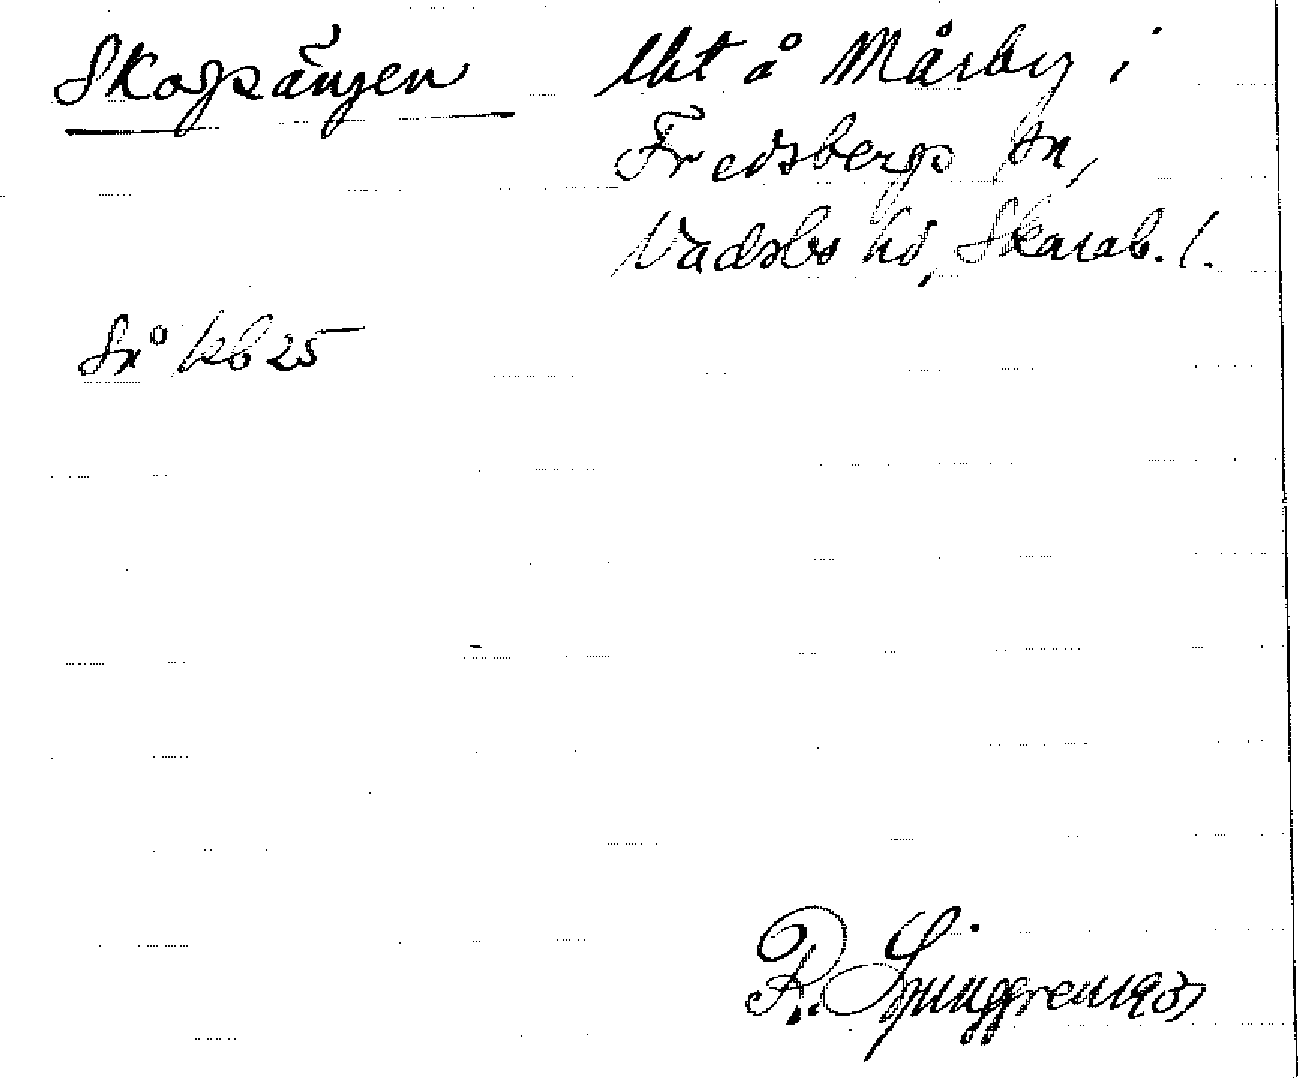 Skogsängen
Uht å Mårby i
Fredsbergs sn,
Vadsbo hd, Skarab. l.
Snö kb 25
R. Ljunggren